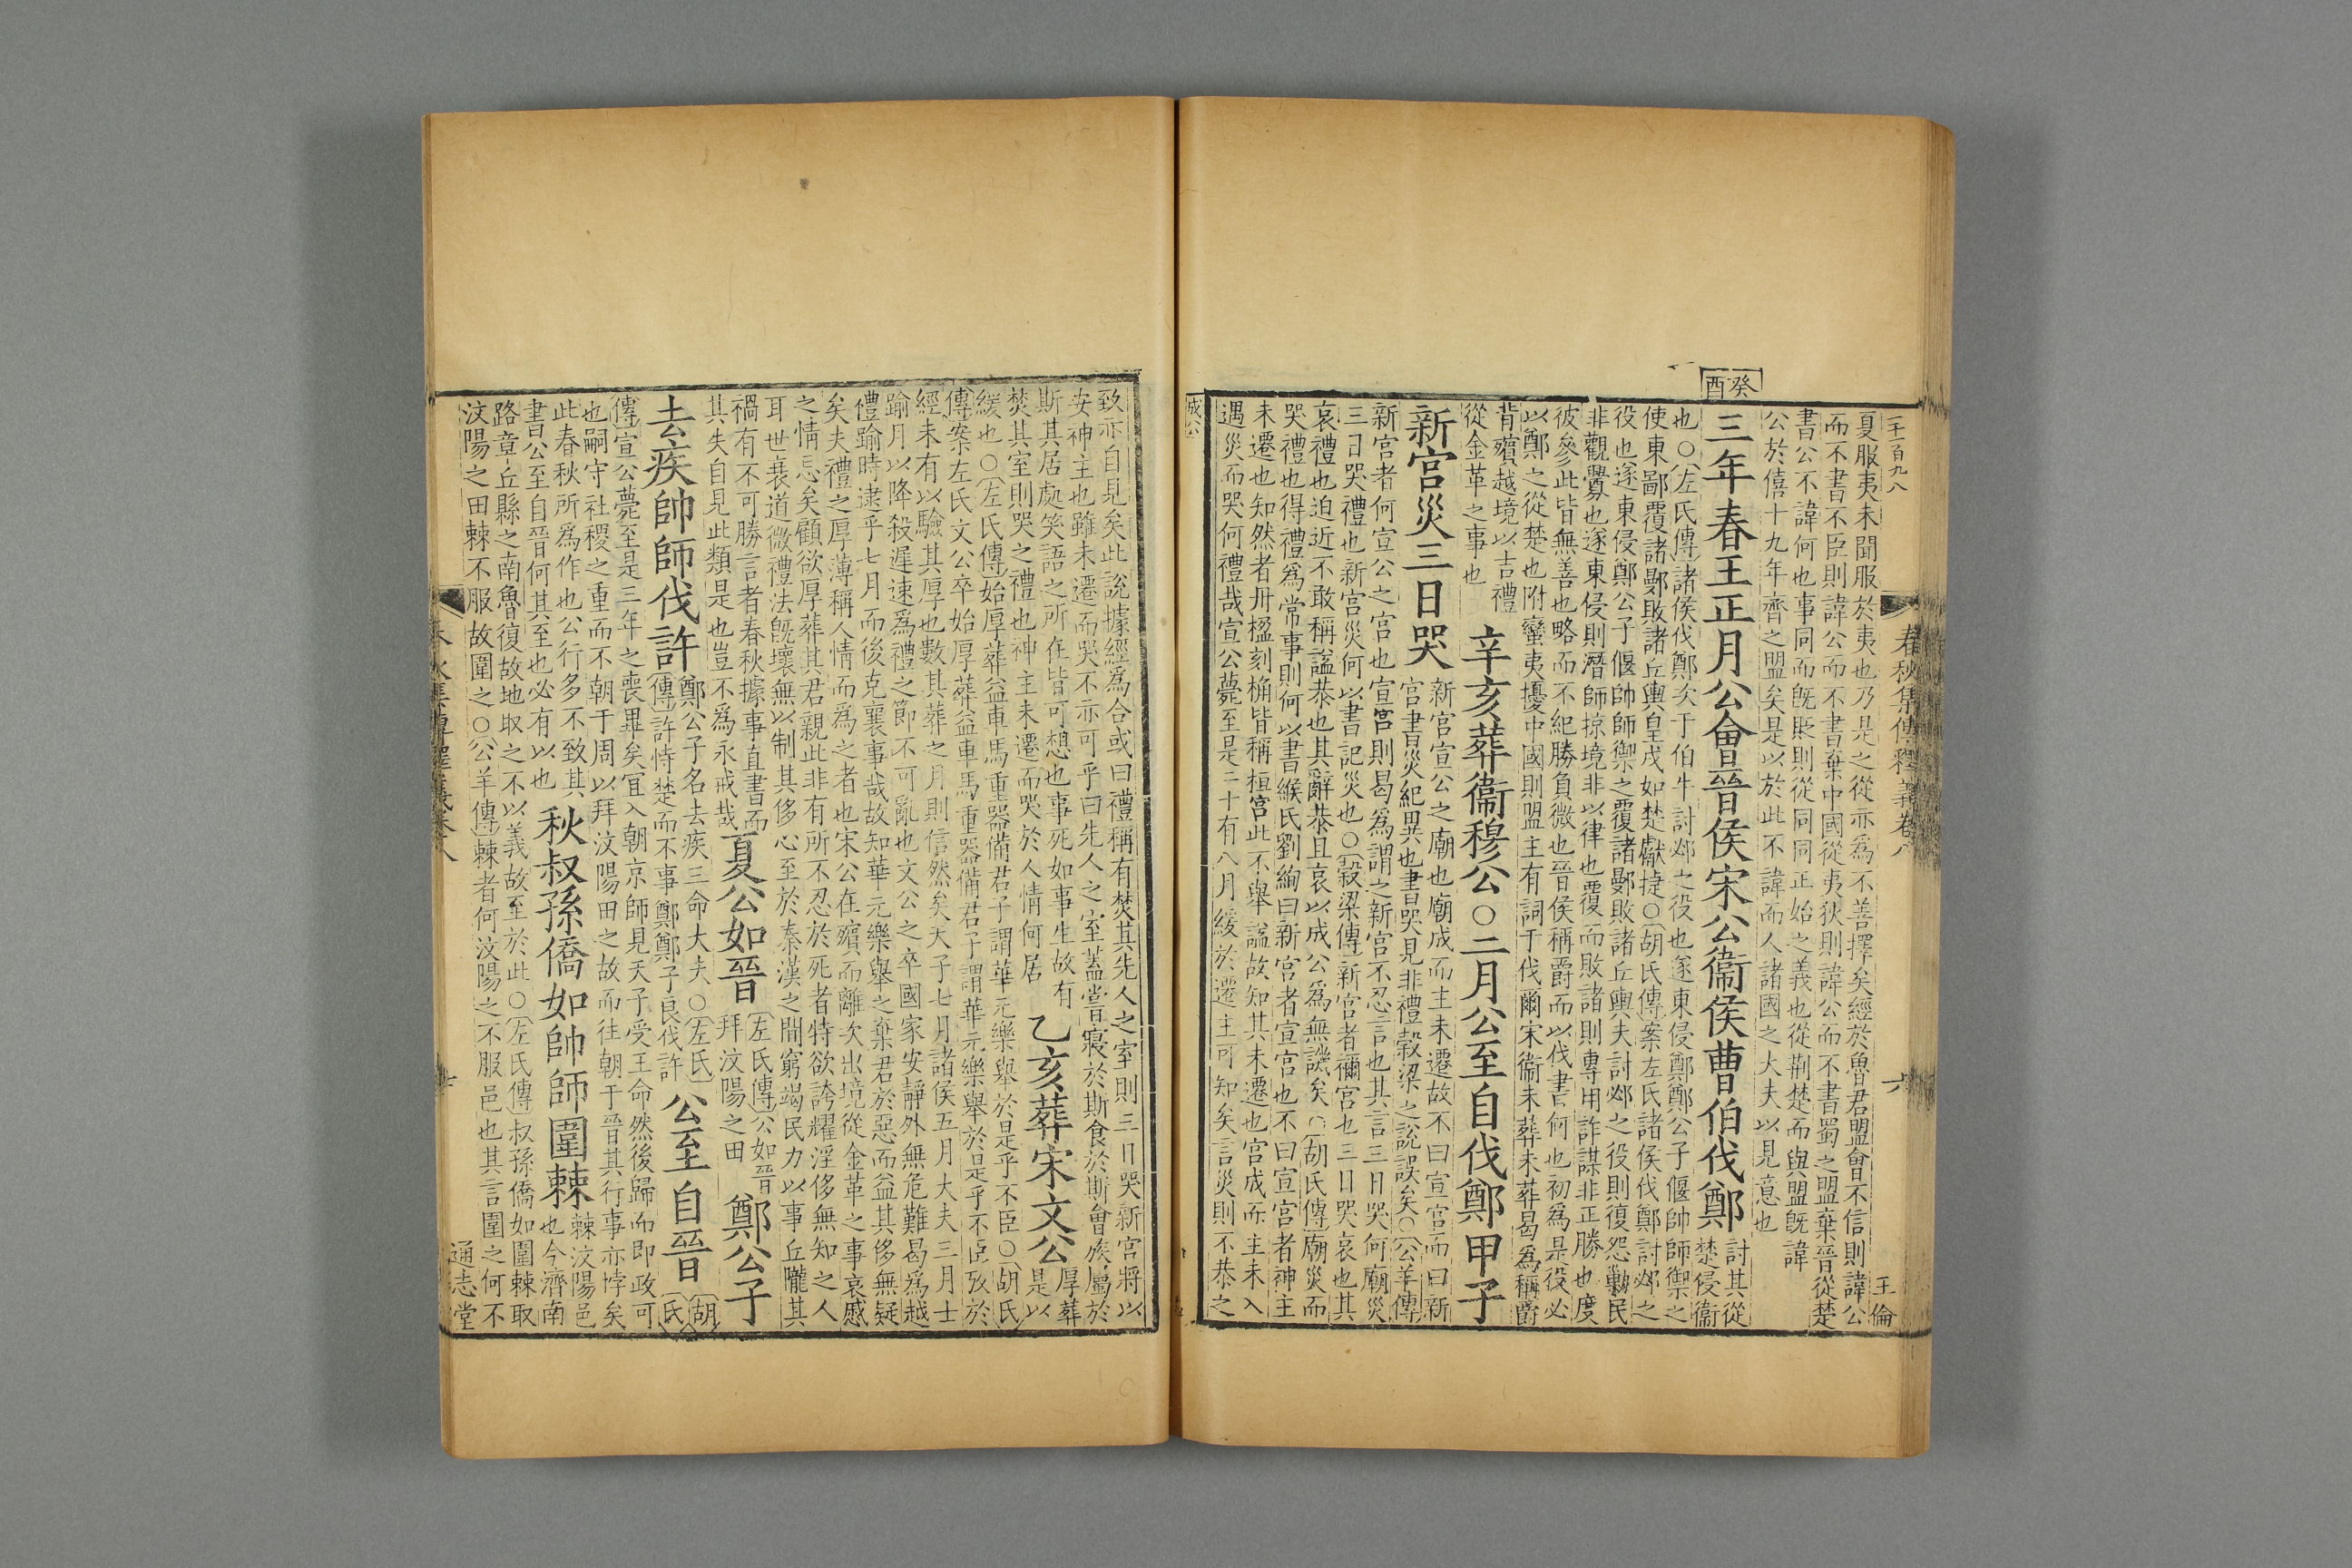 二千一百九八
春秋集傳釋義卷八
六
王倫
夏服夷未聞服於夷也乃是之從亦為不善擇矣經於魯君盟會不信則諱公
而不書不臣則諱公而不書棄中國從夷狄則諱公而不書蜀之盟棄晉從楚
書公不諱何也事同而旣貶則從同同正始之義也從荆楚而與盟旣諱
公於僖十九年齊之盟矣是以於此不諱而人諸國之大夫以見意也
癸酉
三年春王正月公會晉侯宋公衞侯曹伯伐鄭
討其從楚侵衞
也〇左氏傳諸侯伐鄭次于伯牛討邲之役也遂東侵鄭鄭公子偃帥師禦之
使東鄙覆諸鄤敗諸丘輿皇戌如楚獻捷〇胡氏傳案左氏諸侯伐鄭討邲之
役也遂東侵鄭公子偃帥師禦之覆諸鄤敗諸丘輿夫討邲之役則復怨勤民
非觀釁也遂東侵則潛師掠境非以律也覆而敗諸則專用詐謀非正勝也度
彼參此皆無善也略而不紀勝負微也晉侯稱爵而以伐書何也初為是役必
以鄭之從楚也附蠻夷擾中國則盟主有詞于伐爾宋衞未葬曷為稱爵
背殯越境以吉禮
從金革之事也
辛亥葬衞穆公〇二月公至自伐鄭甲子
新宮災三日哭
新宮宣公之廟也廟成而主未遷故不曰宣宮而曰新
宮書災紀異也書哭見非禮穀梁之說誤矣〇公羊傳
新宮者何宣公之宮也宣宮則曷為謂之新宮不忍言也其言三日哭何廟災
三日哭禮也新宮災何以書記災也〇穀梁傳新宮者禰宮也三日哭哀也其
哀禮也迫近不敢稱謚恭也其辭恭且哀以成公為無譏矣〇胡氏傳廟災而
哭禮也得禮為常事則何以書緱氏劉絢曰新宮者宣宮也不曰宣宮者神主
未遷也知然者丹楹刻桷皆稱桓宮此不舉謚故知其未遷也宮成而主未入
遇災而哭何禮哉宣公薨至是二十有八月緩於遷主可知矣言災則不恭之
成公
致亦自見矣此說據經為合或曰禮稱有焚其先人之室則三日哭新宮將以
安神主也雖未遷而哭不亦可乎曰先人之室蓋嘗寢於斯食於斯會族屬於
斯其居處笑語之所在皆可想也事死如事生故有
焚其室則哭之禮也神主未遷而哭於人情何居
乙亥葬宋文公
厚葬
是以
緩也〇左氏傳始厚葬益車馬重器備君子謂華元樂舉於是乎不臣〇胡氏
傳案左氏文公卒始厚葬益車馬重器備君子謂華元樂舉於是乎不臣攷於
經未有以驗其厚也數其葬之月則信然矣天子七月諸侯五月大夫三月士
踰月以降殺遲速為禮之節不可亂也文公之卒國家安靜外無危難曷為越
禮踰時逮乎七月而後克襄事哉故知華元樂舉之棄君於惡而益其侈無疑
矣夫禮之厚薄稱人情而為之者也宋公在殯而離次出境從金革之事哀慼
之情忘矣顧欲厚葬其君親此非有所不忍於死者特欲誇耀淫侈無知之人
耳世衰道微禮法旣壞無以制其侈心至於秦漢之間窮竭民力以事丘隴其
禍有不可勝言者春秋據事直書而
其失自見此類是也豈不為永戒哉
夏公如晉
左氏傳公如晉
拜汶陽之田
鄭公子
去疾帥師伐許
鄭公子名去疾三命大夫〇左氏
傳許恃楚而不事鄭鄭子良伐許
公至自晉
胡
氏
傳宣公薨至是三年之喪畢矣宜入朝京師見天子受王命然後歸而即政可
也嗣守社稷之重而不朝于周以拜汶陽田之故而往朝于晉其行事亦悖矣
此春秋所為作也公行多不致其
書公至自晉何其至也必有以也
秋叔孫僑如帥師圍棘
棘汶陽邑
也今濟南
路章丘縣之南魯復故地取之不以義故至於此〇左氏傳叔孫僑如圍棘取
汶陽之田棘不服故圍之〇公羊傳棘者何汶陽之不服邑也其言圍之何不
春秋集傳釋義卷八
通志堂